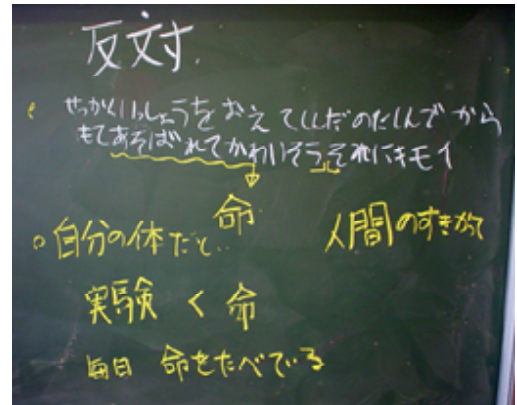 反対.
せっかくいっしょうをおえてしんだのにしんでから
もてあそばれてかわいそう、それにキモイ
命
自分の体だと…
人間のすきかって
実験 < 命
毎日 命をたべている